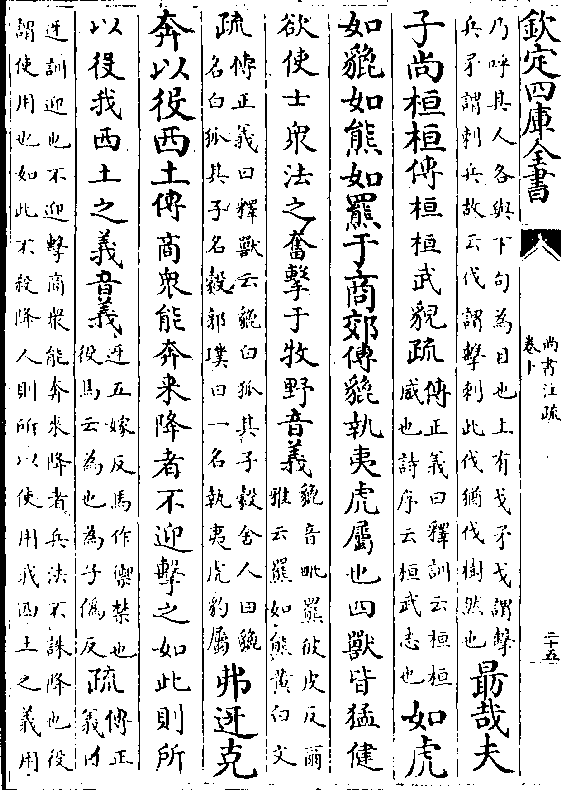 欽定四庫全書
尚書注疏
卷十
二十五
乃呼其人各與下句為目也上有戈矛戈謂擊
兵矛謂刺兵故云伐謂擊刺此伐猶伐樹然也
勗哉夫
子尚桓桓傳桓桓武貌疏
傳正義曰釋訓云桓桓
威也詩序云桓武志也
如虎
如貔如熊如羆于商郊傳貔執夷虎屬也四獸皆猛健
欲使士衆法之奮擊于牧野音義
貔音毗羆彼皮反爾
雅云羆如熊黄白文
疏
傳正義曰釋獸云貔白狐其子豰舍人曰貔
名白狐其子名豰郭璞曰一名執夷虎豹屬
弗迓克
奔以役西土傳商衆能奔来降者不迎擊之如此則所
以役我西土之義音義
迓五嫁反馬作禦禁也
役馬云為也為于偽反
疏
傳正
義曰
迓訓迎也不迎擊商衆能奔來降者兵法不誅降也役
謂使用也如此不殺降人則所以使用我西土之義用